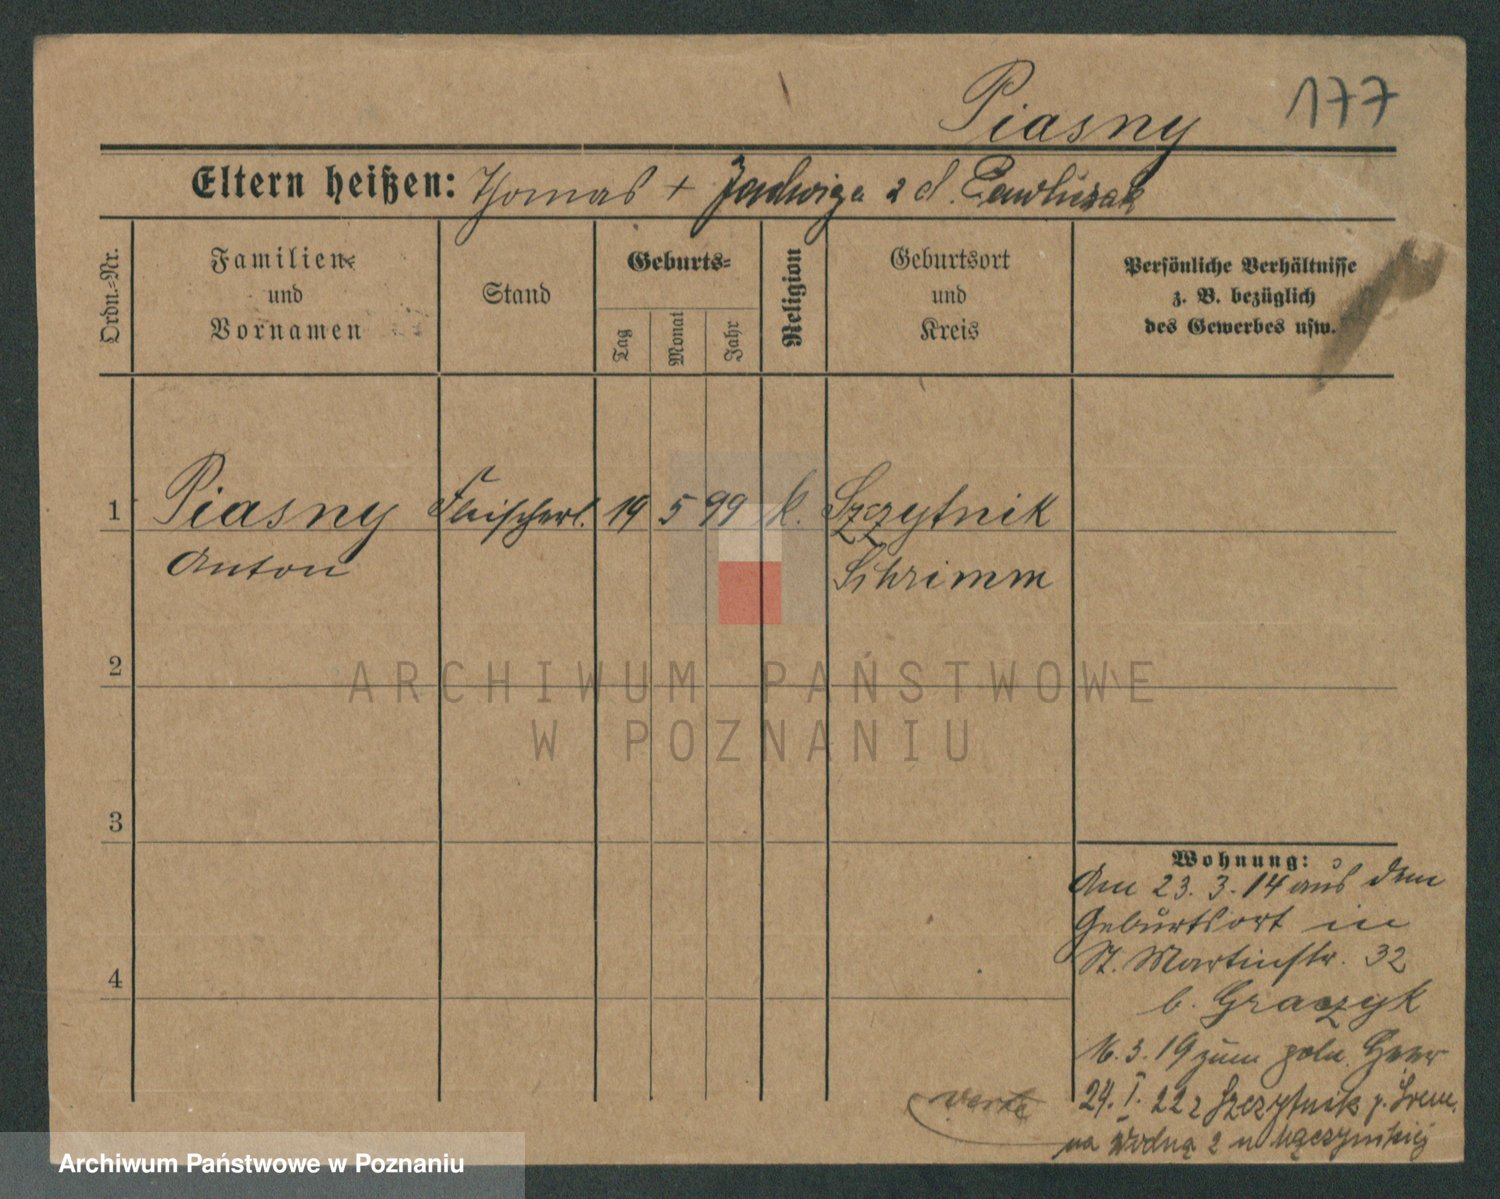 Piasny 177
Eltern heißen: Thomas + Jadwiga z d. Pawluzak
Ordn.-Nr.
Familien-
und
Vornamen
Stand
Geburts-
Tag
Monat
Jahr
Religion
Geburtsort
und
Kreis
Persönliche Verhältnisse
z. B. bezüglich
des Gewerbes usw.
1 Piasny Fleischerl. 19 5 99 k. Szczytnik
Anton Schrimm
2
ARCHIWUM PAŃSTWOWE
W POZNANIU
3
4
Wohnung:
Am 23. 3. 14 aus dem
Geburtsort in
St. Martinstr. 32
b. Graczyk
16. 3. 19 zum poln. Heer
24. I. 22 z Szczytnik p. Śrem.
na Wodną 2 u
verte
Archiwum Państwowe w Poznaniu